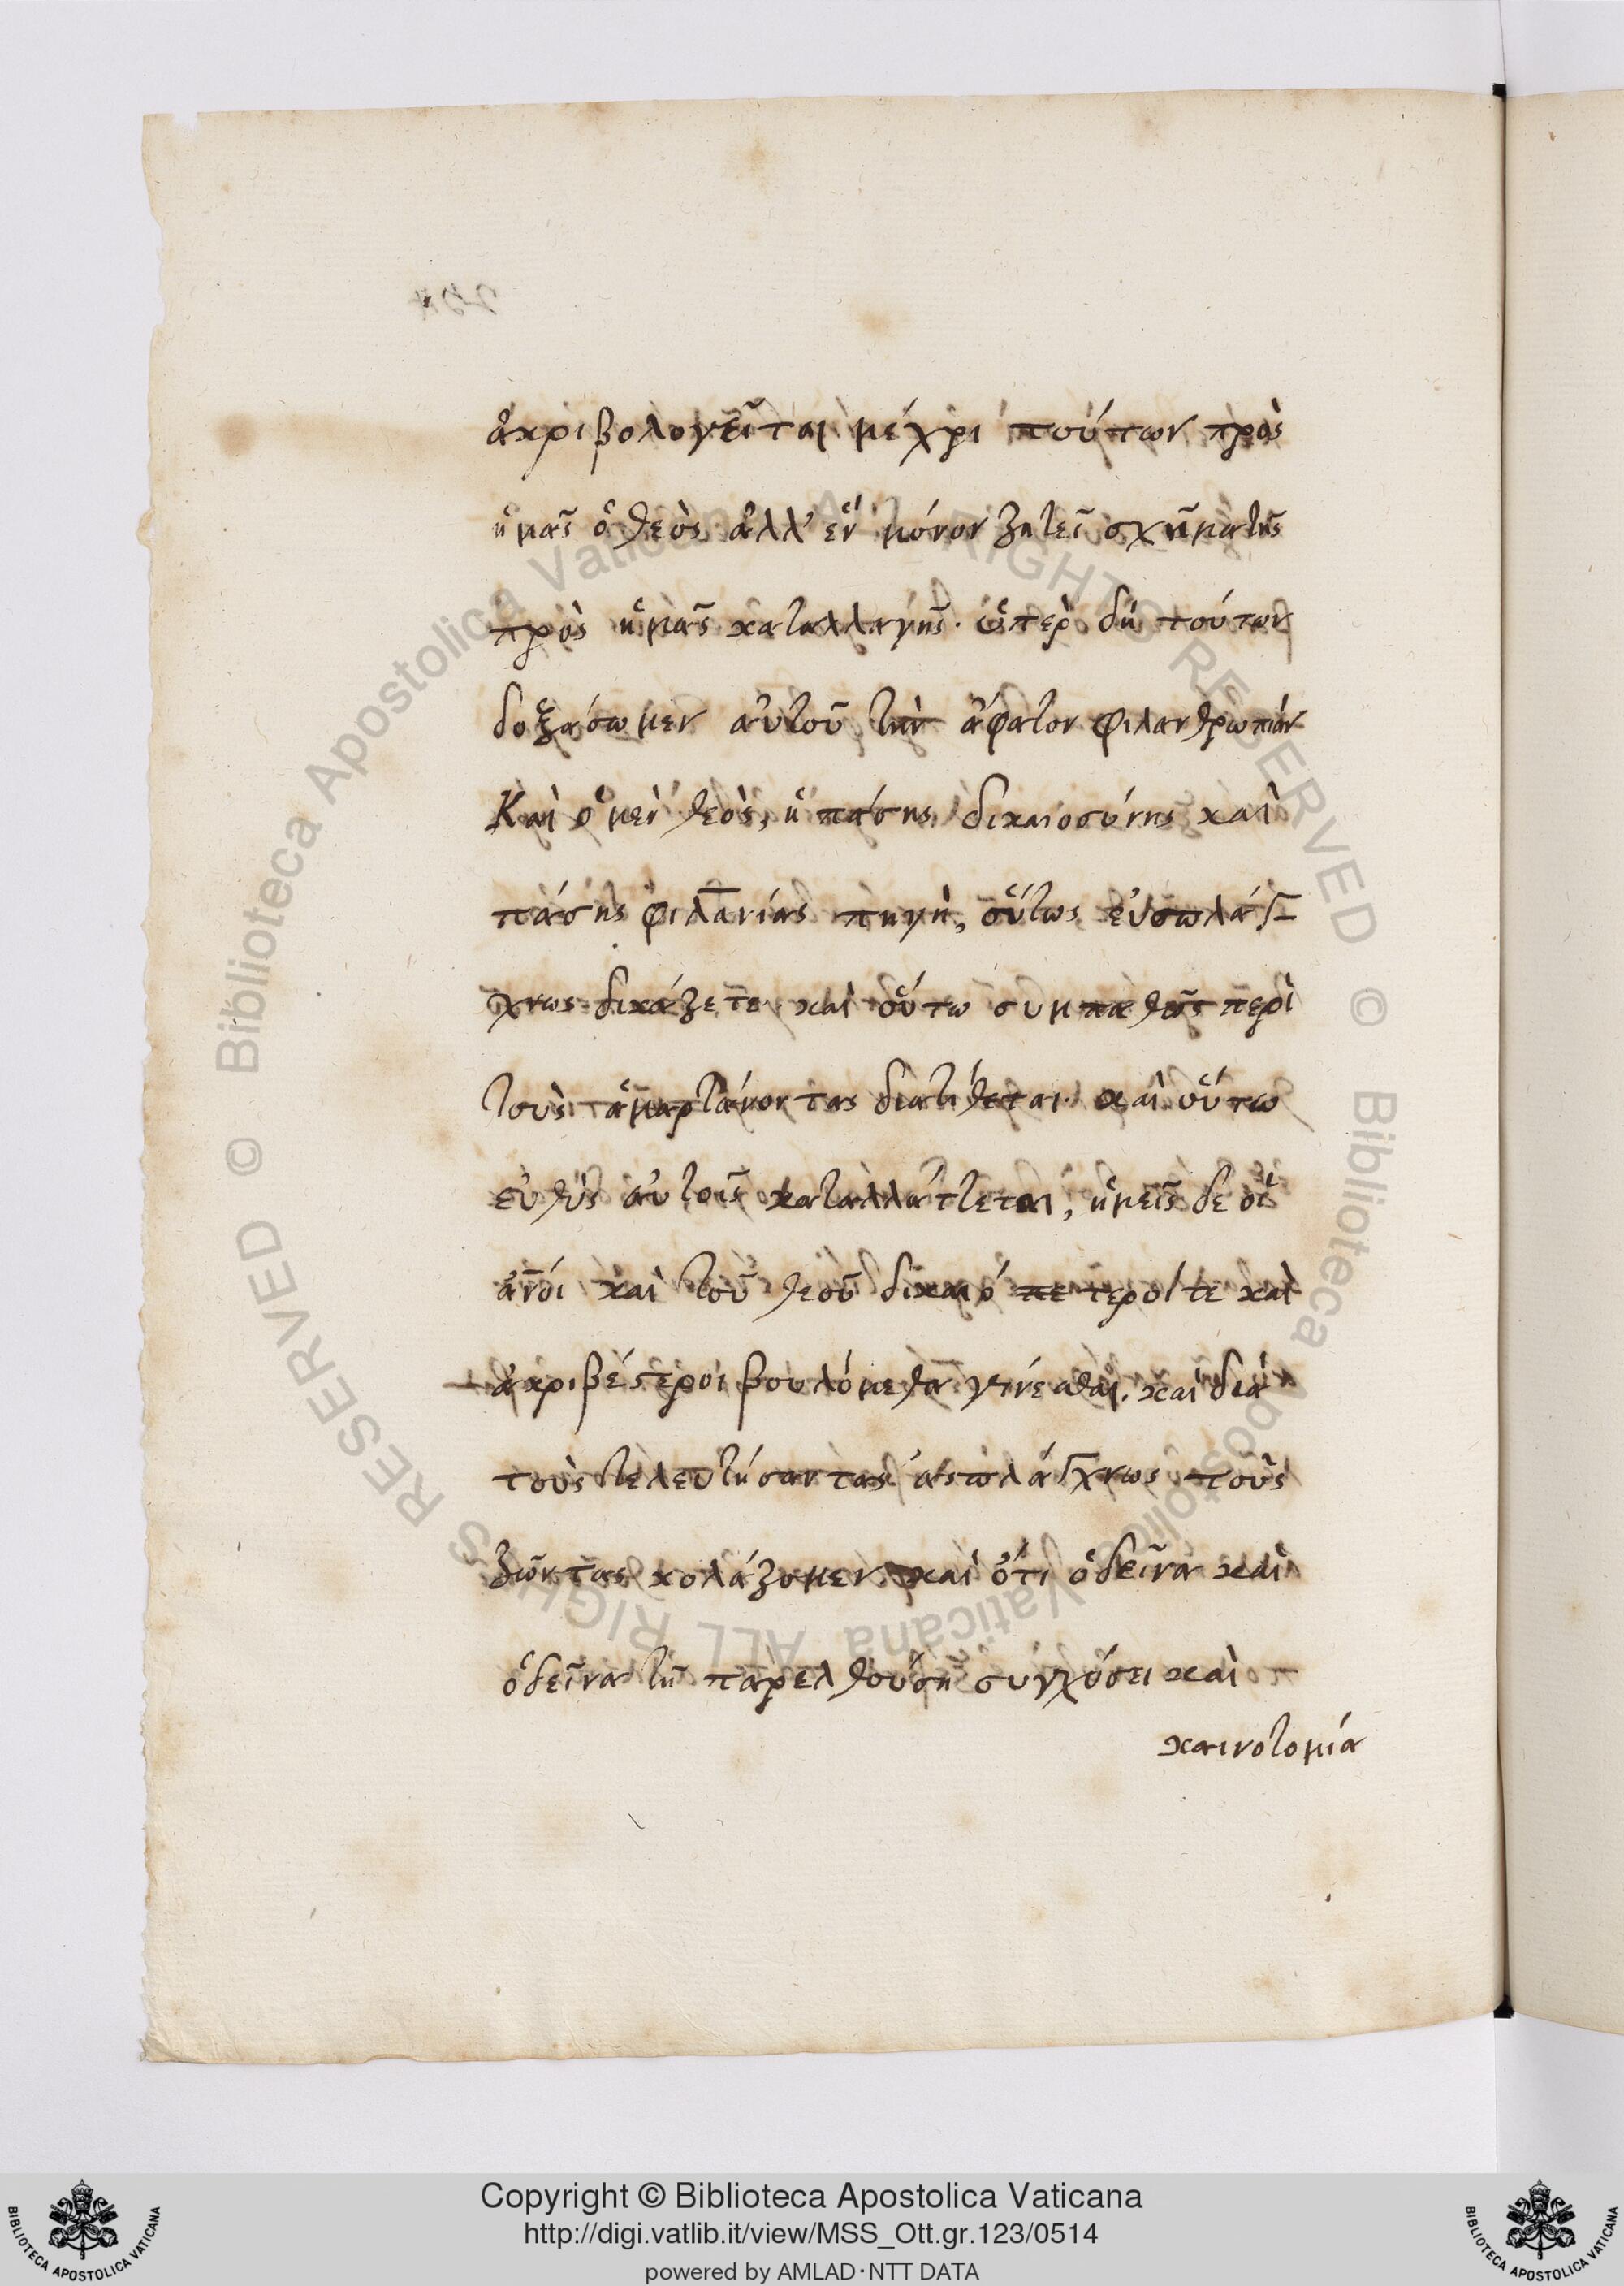 ἀκριβολογεῖται μέχρι τούτων πρὸς
ἡμᾶς ὁ θεὸς ἀλλ' ἓν μόνον ζητεῖ σχῆμα τῆς
πρὸς ἡμᾶς καταλλαγῆς. ὑπὲρ δὴ τούτων
δοξάσωμεν αὐτοῦ τὴν ἄφατον φιλανθρωπίαν
Καὶ ὁ μὲν θεὸς, ἡ πάσης δικαιοσύνης καὶ
πάσης φιλανίας πηγὴ, οὕτως εὐσπλάγ-
χνως δικάζετε καὶ οὕτω συμπαθῶς περὶ
τοὺς ἁμαρτάνοντας διατίθεται. καὶ οὕτω
εὐθὺς αὐτοῖς καταλλάττεται, ἡμεῖς δε οἱ
ἀνοι καὶ τοῦ θεοῦ δικαιό τεροί τε καὶ
ἀκριβέστεροι βουλόμεθα γενέσθαι. καὶ διὰ
τοὺς τελευτήσαντας ἀσπλάγχνως τοὺς
ζῶντας κολάζομεν καὶ ὅτι ὁ δεῖνα καὶ
ὁ δεῖνα τῆ παρελθούση συγχύσει καὶ
καινοτομία
Copyright © Biblioteca Apostolica Vaticana
http://digi.vatlib.it/view/MSS_Ott.gr.123/0514
powered by AMLAD·NTT DATA
BIBLIOTECA APOSTOLICA VATICANA
BIBLIOTECA APOSTOLICA VATICANA
© Biblioteca Apostolica Vaticana ALL RIGHTS RESERVED
© Biblioteca Apostolica Vaticana ALL RIGHTS RESERVED